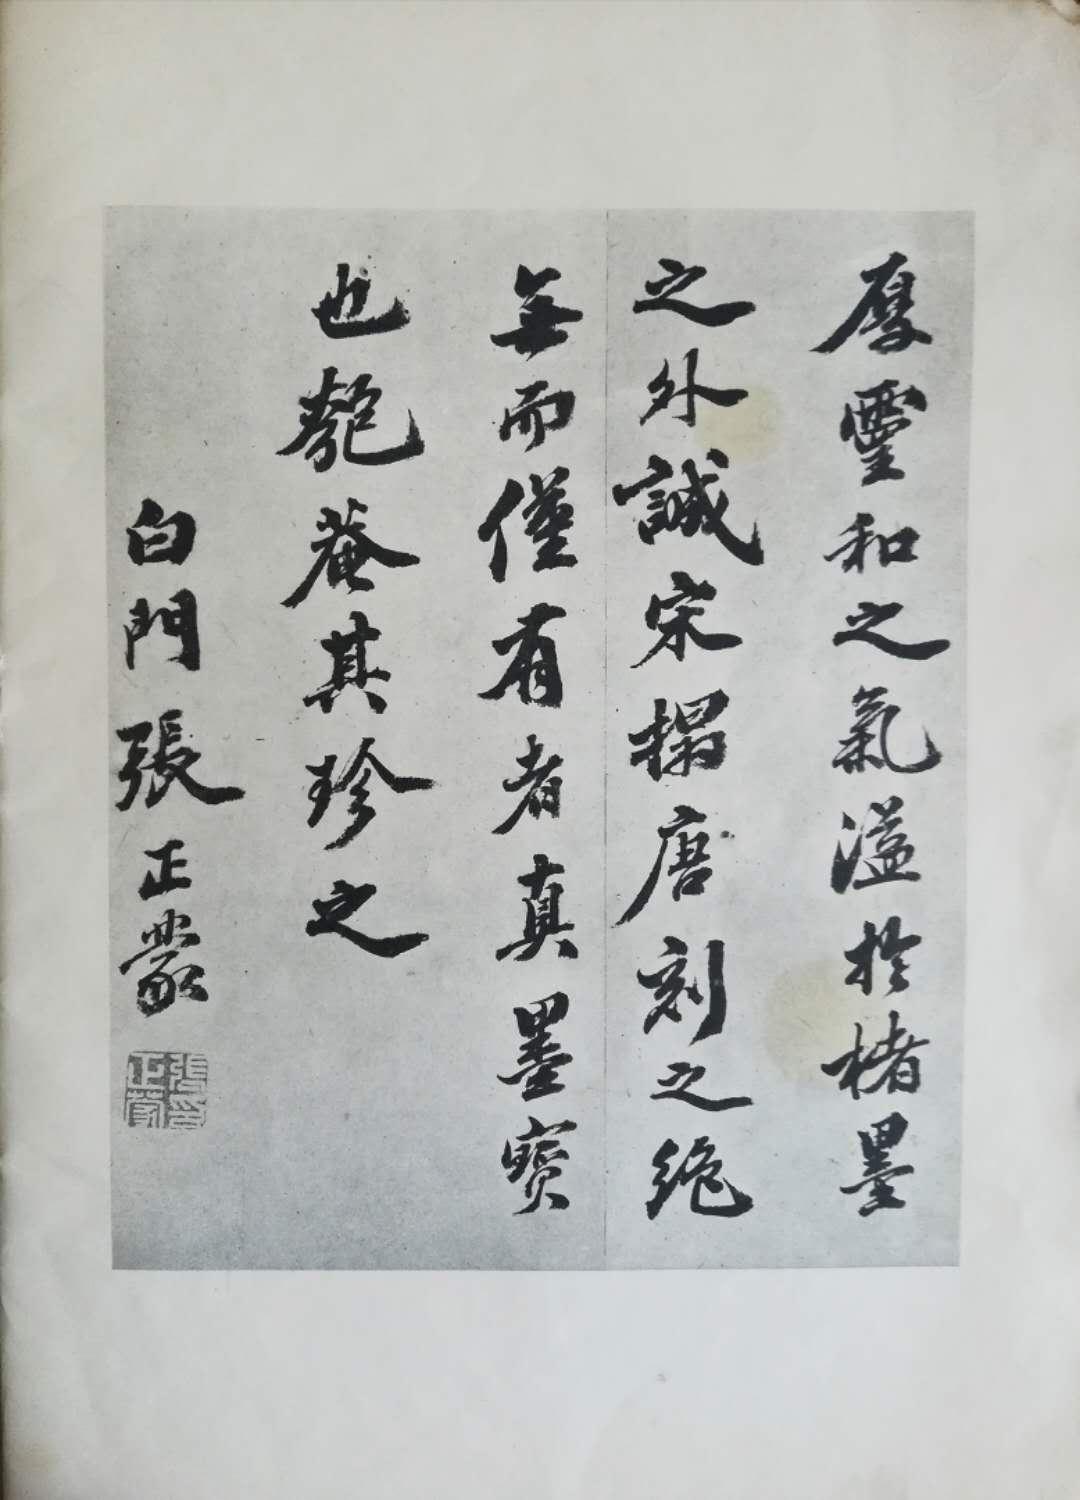 厚靈和之氣溢於楮墨
之外誠宋搨唐刻之絶
無而僅有者真墨寶
也匏菴其珍之
白門張正蒙
張正蒙印